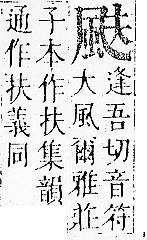 颫
逢吾切音符
大風爾雅莊
子本作扶集韻
通作扶義同